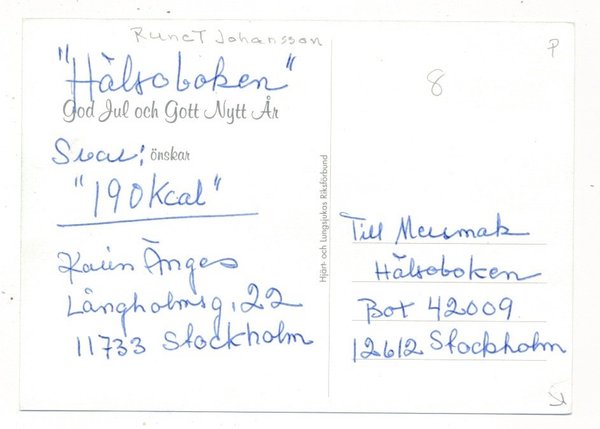 RuneT Johansson
"Hälsoboken"
God Jul och Gott Nytt År
Svar: önskar
"190Kcal"
Karin Änges
Långholmsg. 22
11733 Stockholm
Hjärt- och Lungsjukas Riksförbund
P
8
Till Mersmak
Hälsoboken
Box 42009
12612 Stockholm